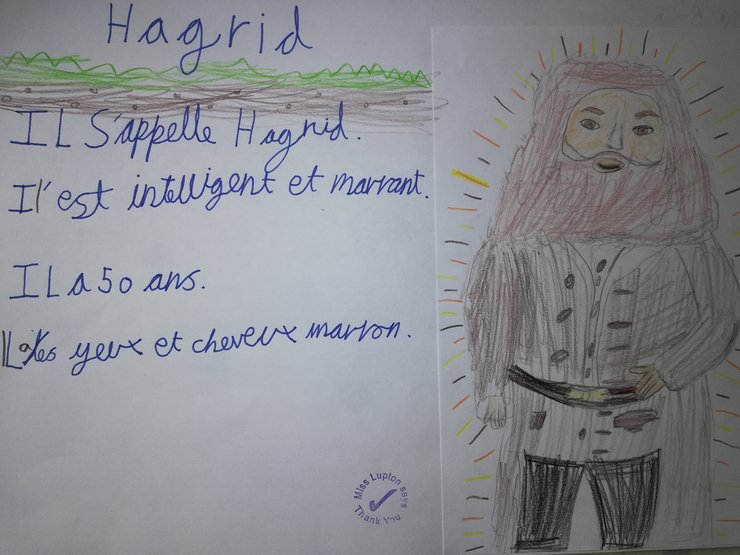 Hagrid
IL S'appelle Hagrid.
Il'est intelligent et marrant.
IL a 50 ans.
IL a les yeux et cheveux marron.
Miss Lupton says
Thank You